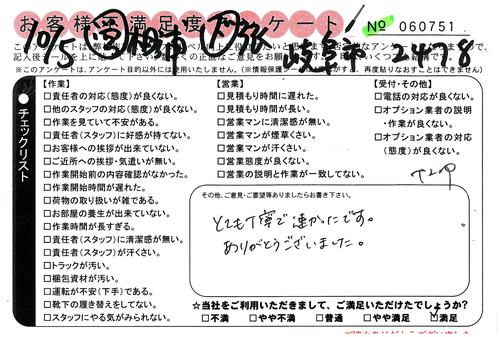 お客様不満足度アンケート № 060751
10/5 岐阜市 2478
記入後シールを上に貼って
(※このアンケートは、アンケート目的以外には使用いたしません。)
チェックリスト
【作業】
□責任者の対応(態度)が良くない。
□他のスタッフの対応(態度)が良くない。
□作業を見ていて不安がある。
□責任者(スタッフ)に好感が持てない。
□お客様への挨拶が出来ていない。
□ご近所への挨拶・気遣いが無い。
□作業開始前の内容確認がなかった。
□作業開始時間が遅れた。
□荷物の取り扱いが雑である。
□お部屋の養生が出来ていない。
□作業時間が長すぎる。
□責任者(スタッフ)に清潔感が無い。
□責任者(スタッフ)が汗くさい。
□トラックが汚い。
□梱包資材が汚い。
□運転が不安(下手)である。
□靴下の履き替えをしてない。
□スタッフにやる気がみられない。
【営業】
□見積もり時間に遅れた。
□見積もり時間が長い。
□営業マンに清潔感が無い。
□営業マンが煙草くさい。
□営業マンが汗くさい。
□営業態度が良くない。
□営業の説明と作業が一致してない。
【受付・その他】
□電話の対応が良くない。
□オプション業者の説明
・作業が良くない。
□オプション業者の対応
(態度)が良くない。
その他、ご意見・ご要望等ありましたらお書き下さい。
とても丁寧で速かったです。
ありがとうございました。
☆当社をご利用いただきまして、ご満足いただけたでしょうか?
□不満 □やや不満 □普通 □やや満足 □満足